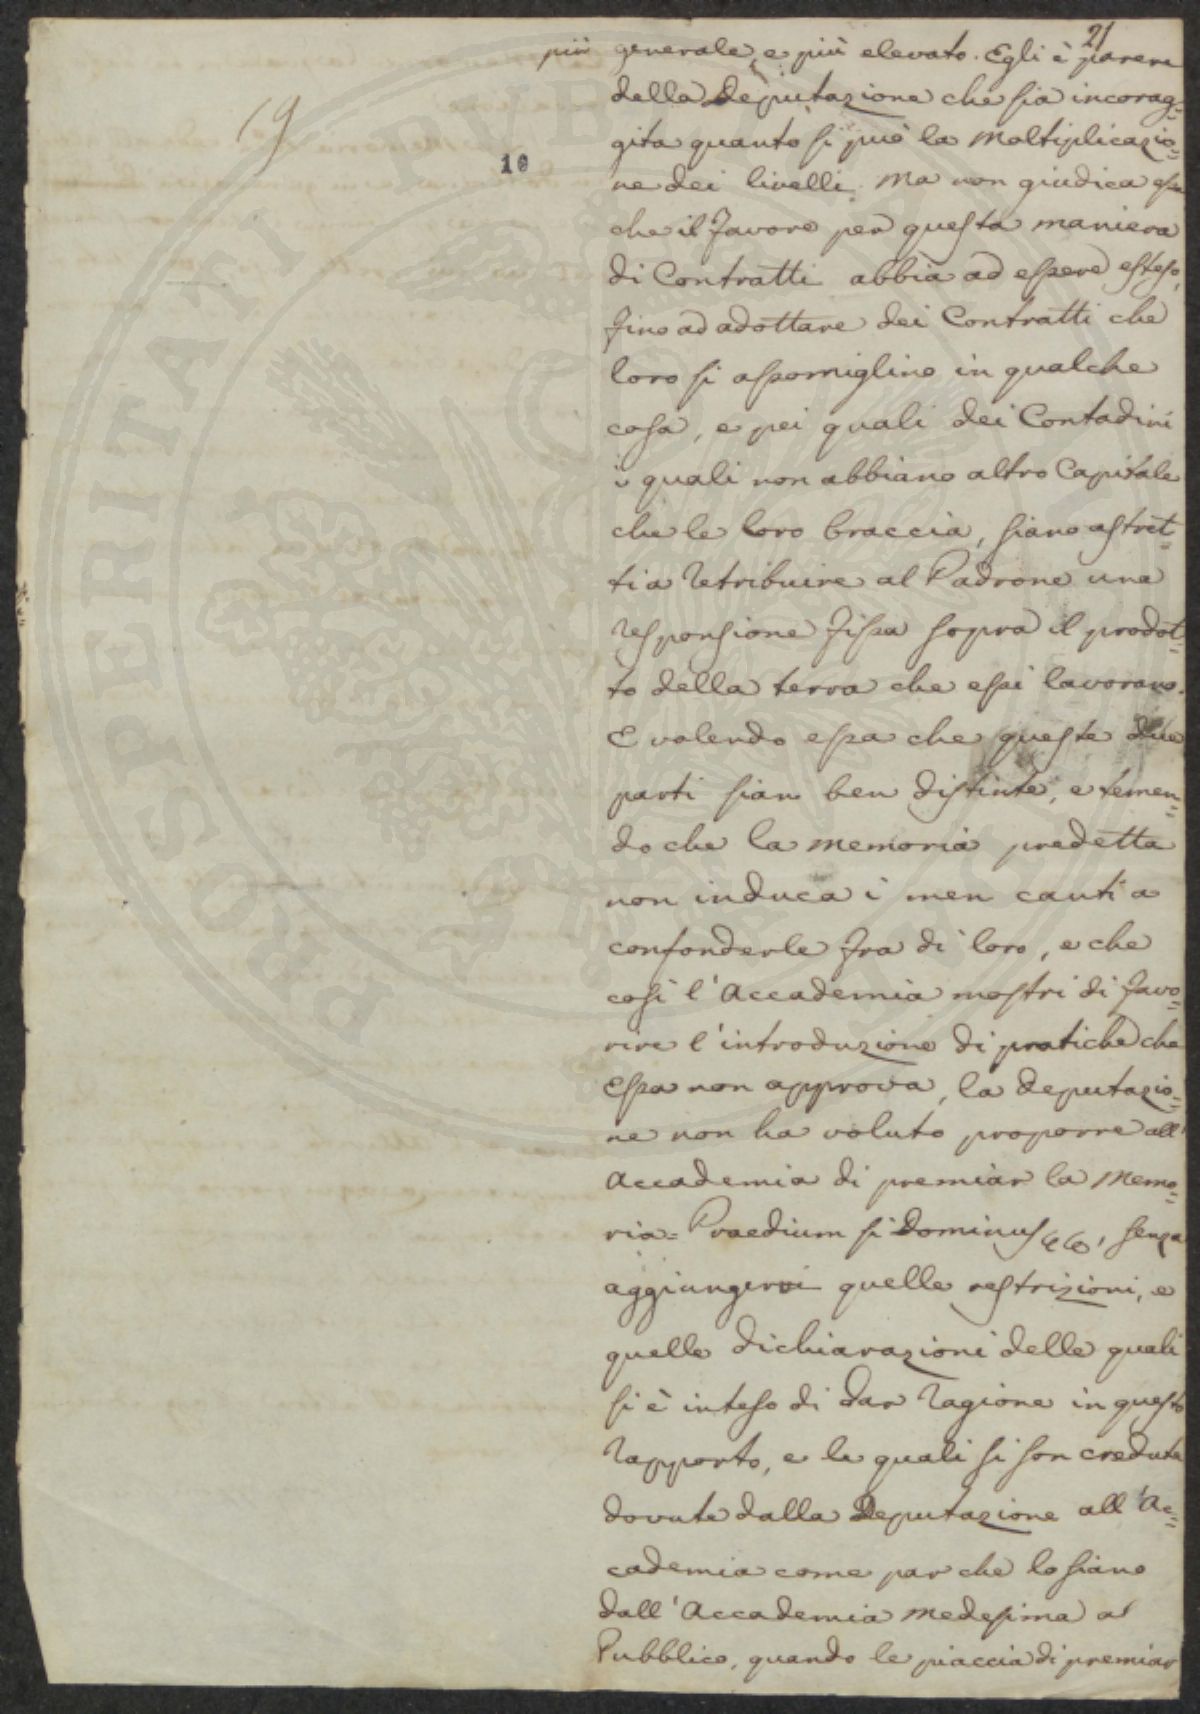 21
più generale, e più elevato. Egli è parere
della Deputazione che sia incorag=
gita quanto si può la moltiplicazio=
ne dei livelli. Ma non giudica essa
che il favore per questa maniera
di Contratti abbia ad essere esteso,
fino ad adottare dei Contratti che
loro si assomiglino in qualche
cosa, e pei quali dei Contadini
i quali non abbiano altro Capitale
che le loro braccia, siano astret=
ti a retribuire al Padrone una
responsione fissa sopra il prodot=
to della terra che essi lavorano.
E volendo essa che queste due
parti sian ben distinte, e temen=
do che la memoria predetta
non induca i men cauti a
confonderle fra di loro, e che
così l'Accademia mostri di favo=
rire l'introduzione di pratiche che
Essa non approva, la deputazio=
ne non ha voluto proporre all'
Accademia di premiar la Memo=
ria = Praedium si dominus senza
aggiungervi quelle restrizioni, e
quelle dichiarazioni delle quali
si è inteso di dar ragione in questo
rapporto, e le quali si son credute
dovute dalla Deputazione all'Ac=
cademia come par che lo siano
dall'Accademia medesima al
Pubblico, quando le piaccia di premiar
19
10
PROSPERITATI PVBLICAE